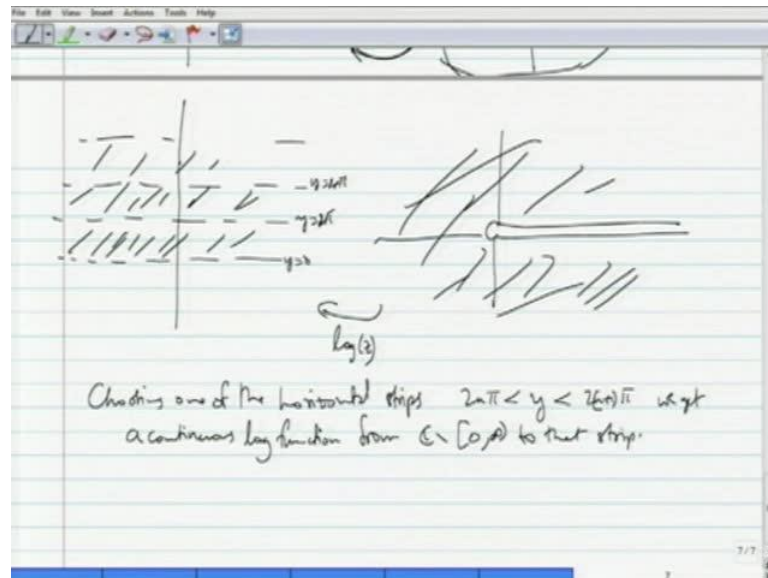 File Edit View Insert Actions Tools Help
y=4π
y=2π
y=0
log(z)
Choosing one of the horizontal strips 2nπ < y < 2(n+1)π we get
a continuous log function from ℂ \ [0,∞) to that strip.
7/7